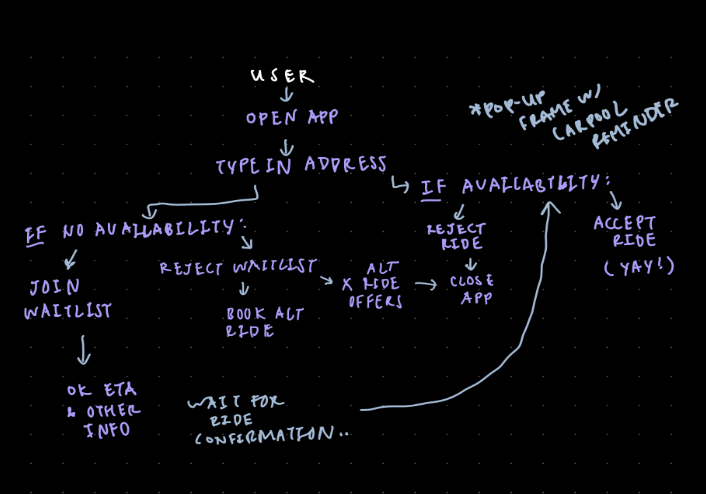 USER
OPEN APP
TYPE IN ADDRESS
*POP-UP
FRAME W/
CARPOOL
REMINDER
IF AVAILABILITY:
REJECT
RIDE
CLOSE
APP
ACCEPT
RIDE
(YAY!)
IF NO AVAILABILITY:
JOIN
WAITLIST
OK ETA
& OTHER
INFO
REJECT WAITLIST
BOOK ALT
RIDE
ALT
X RIDE
OFFERS
WAIT FOR
RIDE
CONFIRMATION..